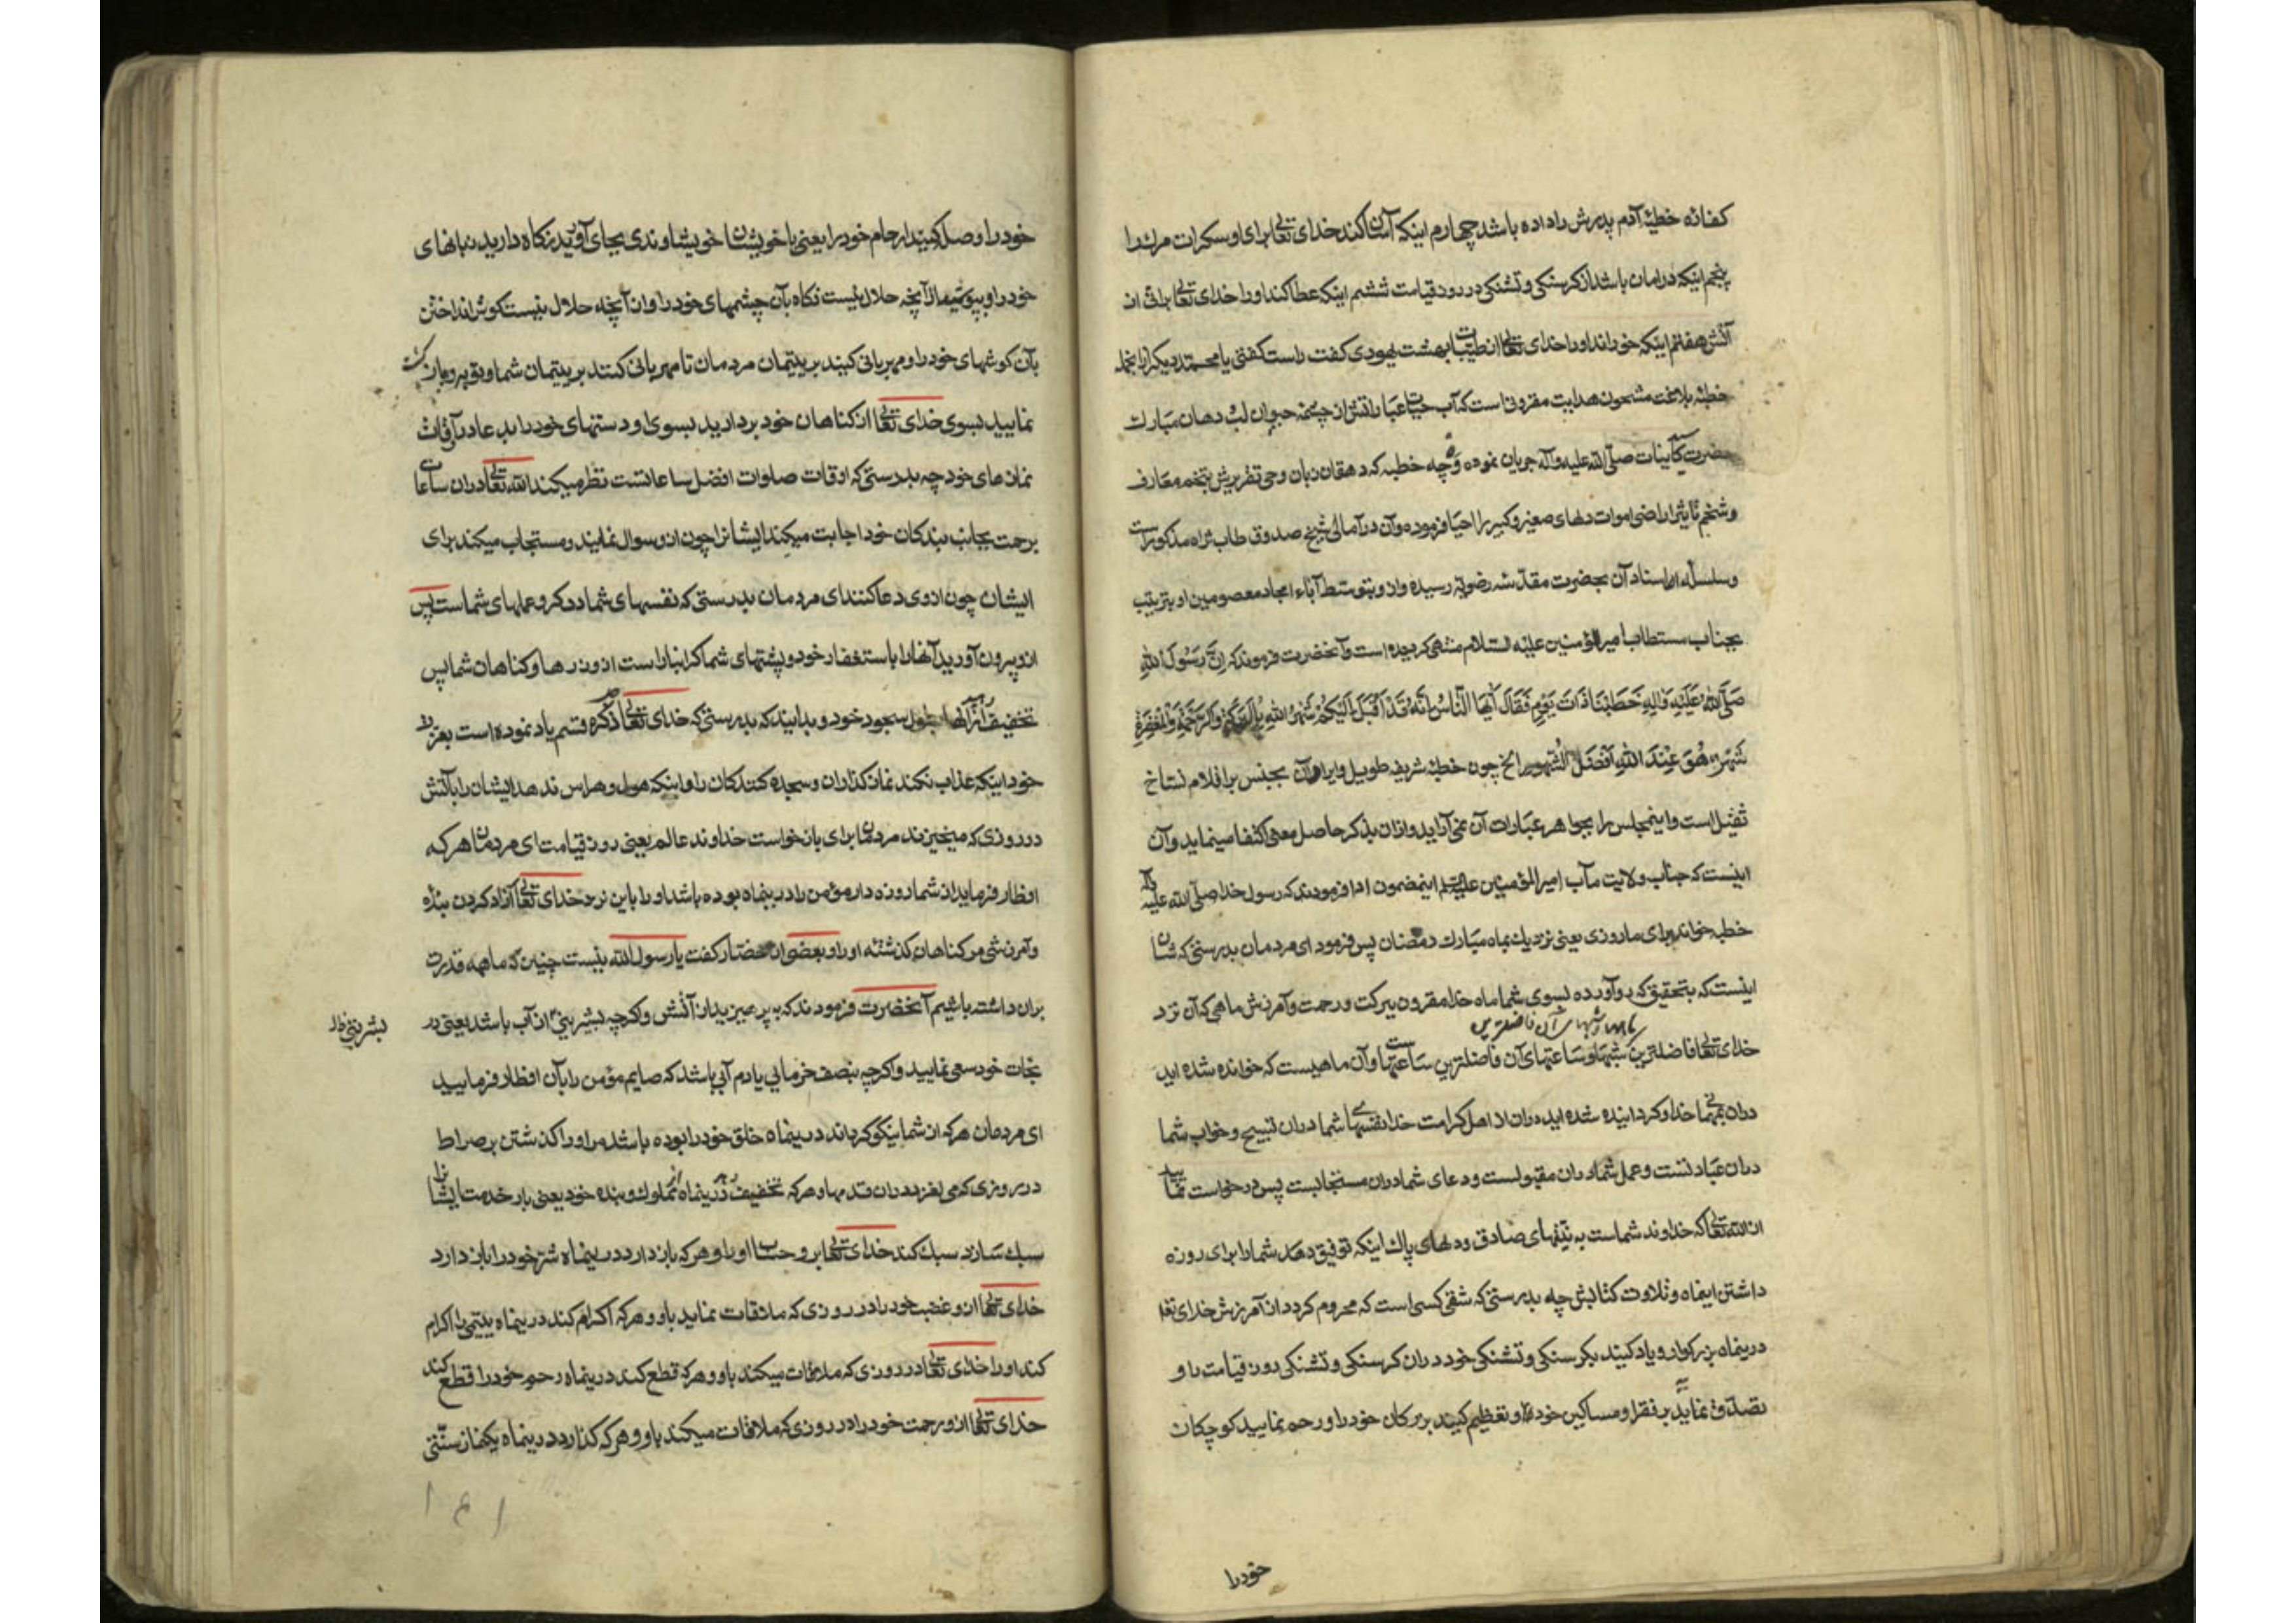 کفاره خطیئه آدم پدرش را داده باشد چهارم اینکه آسان کند خدای تعالی برای او سکرات مرک را
پنجم اینکه در امان باشد از کرسنکی و تشنکی در روز قیامت ششم اینکه عطا کند او را خدای تعالی براتی از
آتش هفتم اینکه خوراند او را خدای تعالی از طیبات بهشت یهودی کفت راست کفتی یا محمد دیکر از انجمله
خطبه بلاغت مشحون هدایت مقرونی است که آب حیات عباراتش از چشمه حیوان لب و دهان مبارک
حضرت کاینات صلی الله علیه وآله جریان نموده و چه خطبه که دهقان زبان وحی تقریرش بتخم معارف
و شخم تأثیر اراضی اموات دلهای صغیر و کبیر را احیا فرموده و آن در آمالی شیخ صدوق طاب ثراه مذکور است
و سلسله اسناد آن بحضرت مقدسه رضویه رسیده و از و بتوسط آباء امجاد معصومین او بترتیب
بجناب مستطاب امیر المؤمنین علیه السلام منتهی کردیده است و آنحضرت فرموند که اِنَّ رَسُولَ اللهِ
صَلَّی اللهُ عَلَیْهِ وَآلِهِ خَطَبَنَا ذَاتَ یَوْمٍ فَقَالَ اَیُّهَا النَّاسُ اِنَّهُ قَدْ اَقْبَلَ اِلَیْکُمْ شَهْرُ اللهِ بِالْبَرَکَةِ وَالرَّحْمَةِ وَالْمَغْفِرَةِ
شَهْرٌ هُوَ عِنْدَ اللهِ اَفْضَلُ الشُّهُورِ الخ چون خطبه شریفه طویل و ایراد آن بجنس بر اقلام نساخ
ثقیل است و اینمجلس را بجواهر عبارات آن نمی آراید و از ان بذکر حاصل معنی اکتفا مینماید و آن
اینست که جناب ولایت مآب امیر المؤمنین علیه السلم اینمضمون ادا فرمودند که رسول خدا صلی الله علیه وآله
خطبه خواند برای ما روزی یعنی نزدیک بماه مبارک رمضان پس فرمود ای مردمان بدرستی که شان
اینست که بتحقیق که رو آورده بسوی شما ماه خدا مقرون ببرکت و رحمت و آمرزش ماهی که آن نزد
خدای تعالی فاضلترین شبها و ساعتهای آن فاضلترین ساعتها و آن ماهیست که خوانده شده اید
دران بمهمانی خدا و کردانیده شده اید دران از اهل کرامت خدا نفسهای شما دران تسبیح و خواب شما
دران عبادتست و عمل شما دران مقبولست و دعای شما دران مستجابست پس درخواست نمایید
از الله تعالی که خداوند شماست به نیتهای صادق و دلهای پاک اینکه توفیق دهد شما را برای روزه
داشتن اینماه و تلاوت کتابش چه بدرستی که شقی کسی است که محروم کردد از آمرزش خدای تعالی
درینماه بزرکوار و یاد کنید بکرسنکی و تشنکی خود دران کرسنکی و تشنکی روز قیامت را و
تصدق نمایید بر فقرا و مساکین خود و تعظیم کنید بزرکان خود را و رحم نمایید کوچکان
خود را
خود را و وصل کنید ارحام خود را یعنی با خویشان خویشاوندی بجای آورید نکاه دارید زبانهای
خود را و بپوشید از آنچه حلال نیست نکاه بآن چشمهای خود را و از آنچه حلال نیست کوش انداختن
بآن کوشهای خود را و مهربانی کنید بر یتیمان مردمان تا مهربانی کنند بر یتیمان شما و توبه و بازکشت
نمایید بسوی خدای تعالی از کناهان خود بردارید بسوی او دستهای خود را بدعا در آوقات
نمازهای خود چه بدرستی که اوقات صلوات افضل ساعاتست نظر میکند الله تعالی دران ساعات
برحمت بجانب بندکان خود اجابت میکند ایشانرا چون ازو سوال نمایند و مستجاب میکند برای
ایشان چون ازوی دعا کنند ای مردمان بدرستی که نفسهای شما در کرو عملهای شماست پس
ازو بیرون آورید آنها را باستغفار خود و پشتهای شما کرانبار است از وزرها و کناهان شما پس
تخفیف دهید از آنها بطول سجود خود و بدانید که بدرستی که خدای تعالی ذکره قسم یاد نموده است بعزت
خود اینکه عذاب نکند نمازکذاران و سجده کنندکان را و اینکه هول و هراس ندهد ایشان را بآتش
در روزی که میخیزند مردمان برای بازخواست خداوند عالم یعنی روز قیامت ای مردمان هر که
افطار فرماید از شما روزه دار مؤمن را درینماه بوده باشد او را باین نزد خدای تعالی آزاد کردن بنده
و آمرزشی مر کناهان کذشته او را و بعضی از حضار کفت یا رسول الله نیست چنین که ما همه قدرت
بران داشته باشیم آنحضرت فرمودند که بپرهیزید از آتش و اکرچه بشربتی از آب باشد یعنی در
بشربتی
نجات خود سعی نمایید و اکرچه بنصف خرمایی یا دم آبی باشد که صایم مؤمن را بآن افطار فرمایید
ای مردمان هر که از شما نیکو کرداند درینماه خلق خود را بوده باشد مر او را کذشتن بر صراط
در روزی که می لغزد دران قدمها و هر که تخفیف دهد درینماه از مملوک و بنده خود یعنی بار خدمت ایشانرا
سبک سازد سبک کند خدای تعالی برو حساب او را و هر که باز دارد درینماه شر خود را باز دارد
خدای تعالی ازو غضب خود را در روزی که ملاقات نماید باو و هر که اکرام کند درینماه یتیمی را اکرام
کند او را خدای تعالی در روزی که ملاقات میکند باو و هر که قطع کند درینماه رحم خود را قطع کند
خدای تعالی ازو رحمت خود را در روزی که ملاقات میکند باو و هر که کذارد درینماه یکنماز سنتی